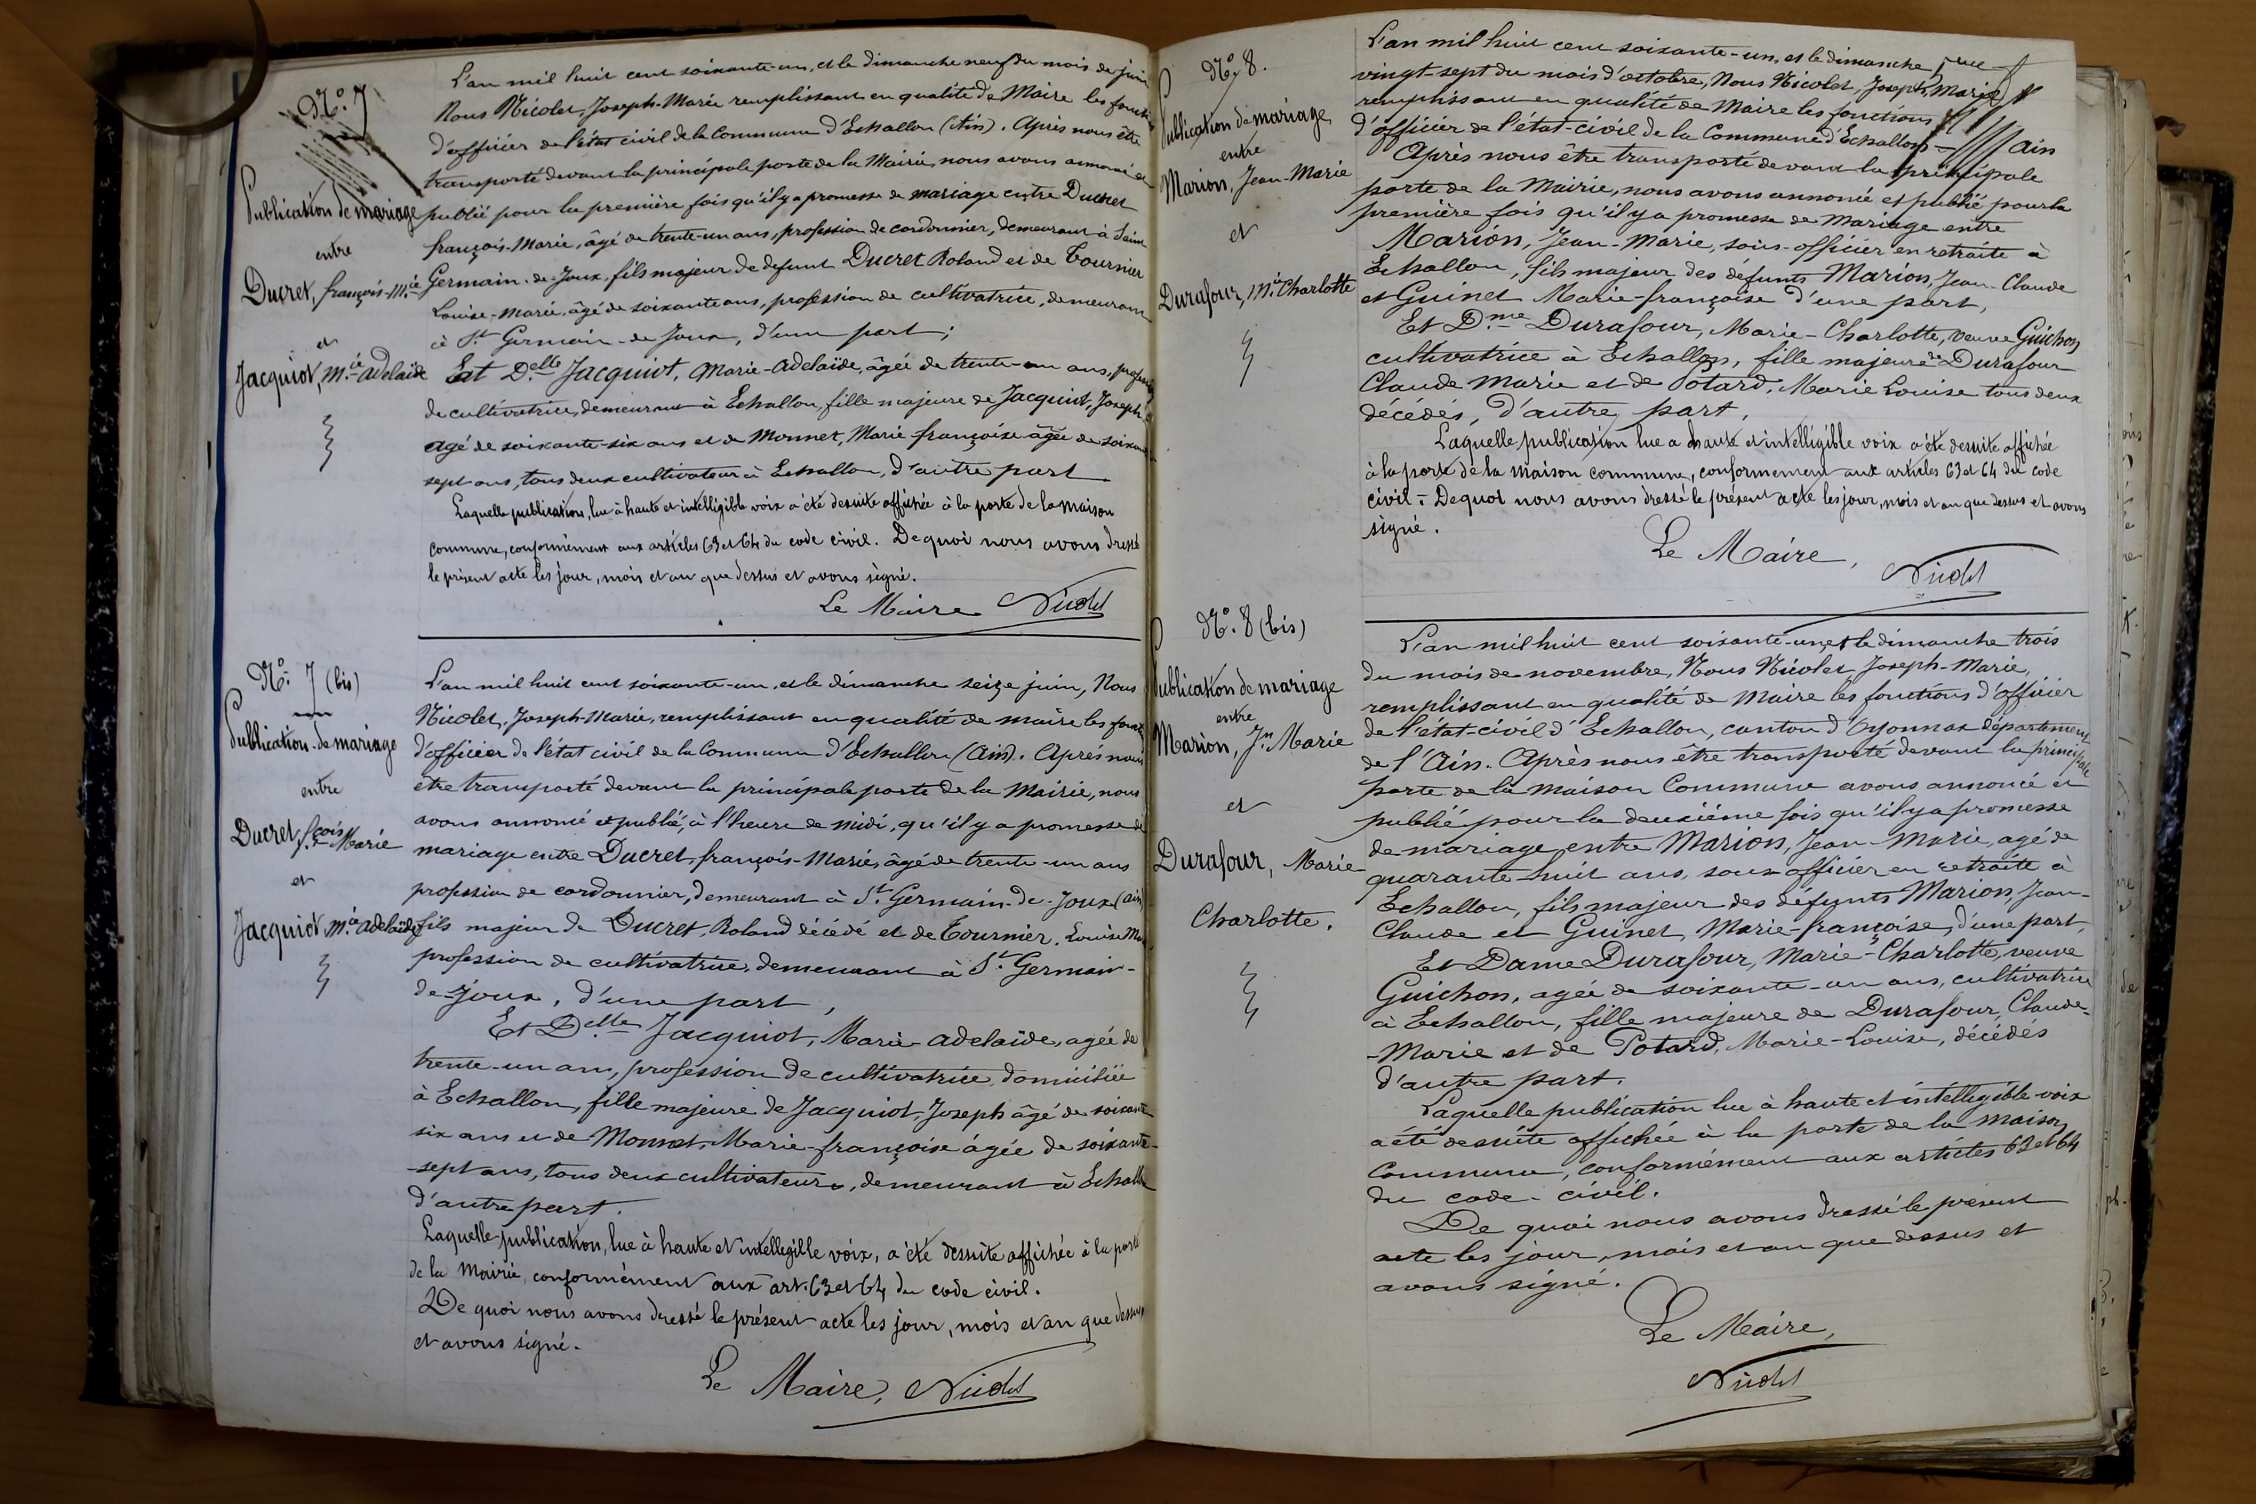 N.o 7
Publication de mariage
entre
Ducret, françois-M.ie
et
Jacquiot, M.ie adelaïde
L'an mil huit cent soixante-un, et le dimanche neuf du mois de juin
Nous Nicolet, Joseph-Marie remplissant en qualité de Maire les
d'officier de l'état civil de la Commune d'Echallon (Ain). Après nous être
transporté devant la principale porte de la Mairie, nous avons annoncé et
publié pour la première fois qu'il y a promesse de mariage entre Ducret
françois-Marie, âgé de trente-un ans, profession de cordonnier, demeurant à Saint
Germain-de-Joux, fils majeur de defunt Ducret Roland et de Tournier
Louise-Marie, âgé de soixante ans, profession de cultivatrice, demeurant
à St Germain-de-Joux, d'une part ;
Et D.elle Jacquiot, Marie-adelaïde, âgée de trente-un ans,
de cultivatrice, demeurant à Echallon, fille majeure de Jacquiot, Joseph
agé de soixante-six ans et de Monnet, Marie françoise âgée de
sept ans, tous deux cultivateur à Echallon, d'autre part
Laquelle publication, lue à haute et intelligible voix a été desuite affichée à la porte de la maison
commune, conformément aux articles 63 et 64 du code civil. De quoi nous avons dressé
le présent acte les jour, mois et an que dessus et avons signé.
Le Maire Nicolet
N.o 7 (bis)
Publication de mariage
entre
Ducret, f.çois Marie
et
Jacquiot, M.ie adelaïde
L'an mil huit cent soixante-un, et le dimanche seize juin, Nous
Nicolet, Joseph-Marie, remplissant en qualité de maire les
d'officier de l'état civil de la Commune d'Echallon (Ain). Après nous
être transporté devant la principale porte de la Mairie, nous
avons annoncé et publié, à l'heure de midi, qu'il y a promesse de
mariage entre Ducret, françois-Marie, âgé de trente-un ans
profession de cordonnier, demeurant à St. Germain-de-Joux (ain)
fils majeur de Ducret, Roland décédé et de Tournier, Louise
profession de cultivatrice, demeurant à St. Germain-
de-Joux, d'une part,
Et D.elle Jacquiot, Marie-adelaïde, agée de
trente-un ans, profession de cultivatrice, domiciliée
à Echallon, fille majeure de Jacquiot, Joseph âgé de soixante
six ans et de Monnet, Marie-françoise âgée de soixante-
-sept ans, tous deux cultivateurs, demeurant à Echallon
d'autre part.
Laquelle publication, lue à haute et intellegille voix, a été desuite affichée à la porte
de la Mairie, conformément aux art. 63 et 64 du code civil.
De quoi nous avons dressé le présent acte les jour, mois et an que dessus
et avons signé.
Le Maire, Nicolet
N.o 8.
Publication de mariage
entre
Marion, Jean-Marie
et
Durafour, M.ie Charlotte
L'an mil huit cent soixante-un, et le dimanche
vingt-sept du mois d'octobre, Nous Nicolet, Joseph, Marie
remplissant en qualité de Maire les fonctions
d'officier de l'état-civil de la Commune d'Echallon - Ain
Après nous être transporté devant la principale
porte de la Mairie, nous avons annoncé et publié pour la
première fois qu'il y a promesse de Mariage entre
Marion, Jean-Marie, sous-officier en retraite à
Echallon, fils majeur des défunts Marion, Jean-Claude
et Guinet Marie-françoise d'une part,
Et D.me Durafour, Marie-Charlotte, veuve Guichon
cultivatrice à Echallon, fille majeure de Durafour
Claude Marie et de Potard, Marie Louise tous deux
décédés, d'autre part,
Laquelle publication lue a haute et intelligible voix a été desuite affichée
à la porte de la maison commune, conformement aux articles 63 et 64 du code
civil. De quoi nous avons dressé le présent acte les jour, mois et an que dessus et avons
signé.
Le Maire,
Nicolet
N.o 8 (bis)
Publication de mariage
entre
Marion, Jn Marie
et
Durafour, Marie
Charlotte.
L'an mil huit cent soixante-un et le dimanche trois
du mois de novembre, Nous Nicolet Joseph-Marie,
remplissant en qualité de Maire les fonctions d'officier
de l'état-civil d'Echallon, canton d'Oyonnax département
de l'Ain. Après nous être transporté devant la principale
porte de la Maison Commune avons annoncé et
publié pour la deuxième fois qu'il y a promesse
de mariage entre Marion, Jean-Marie, agé de
quarante-huit ans, sous-officier en retraite à
Echallon, fils majeur des défunts Marion, Jean-
Claude et Guinet, Marie-françoise, d'une part,
Et Dame Durafour, Marie-Charlotte, veuve
Guichon, agée de soixante-un ans, cultivatrice
à Echallon, fille majeure de Durafour, Claude-
-Marie et de Potard, Marie-Louise, décédés
d'autre part.
Laquelle publication lue à haute et intelligible voix
a été desuite affichée à la porte de la maison
Commune, conformément aux articles 63 et 64
du code-civil.
De quoi nous avons dressé le présent
acte les jour, mois et an que dessus et
avons signé.
Le Maire,
Nicolet